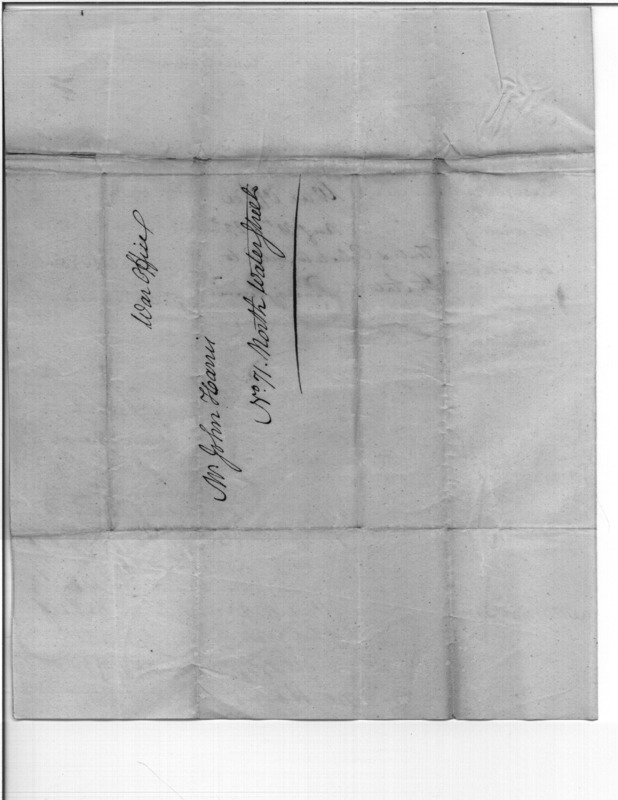 War Office
Mr John Harris
No. 71. North Water Street